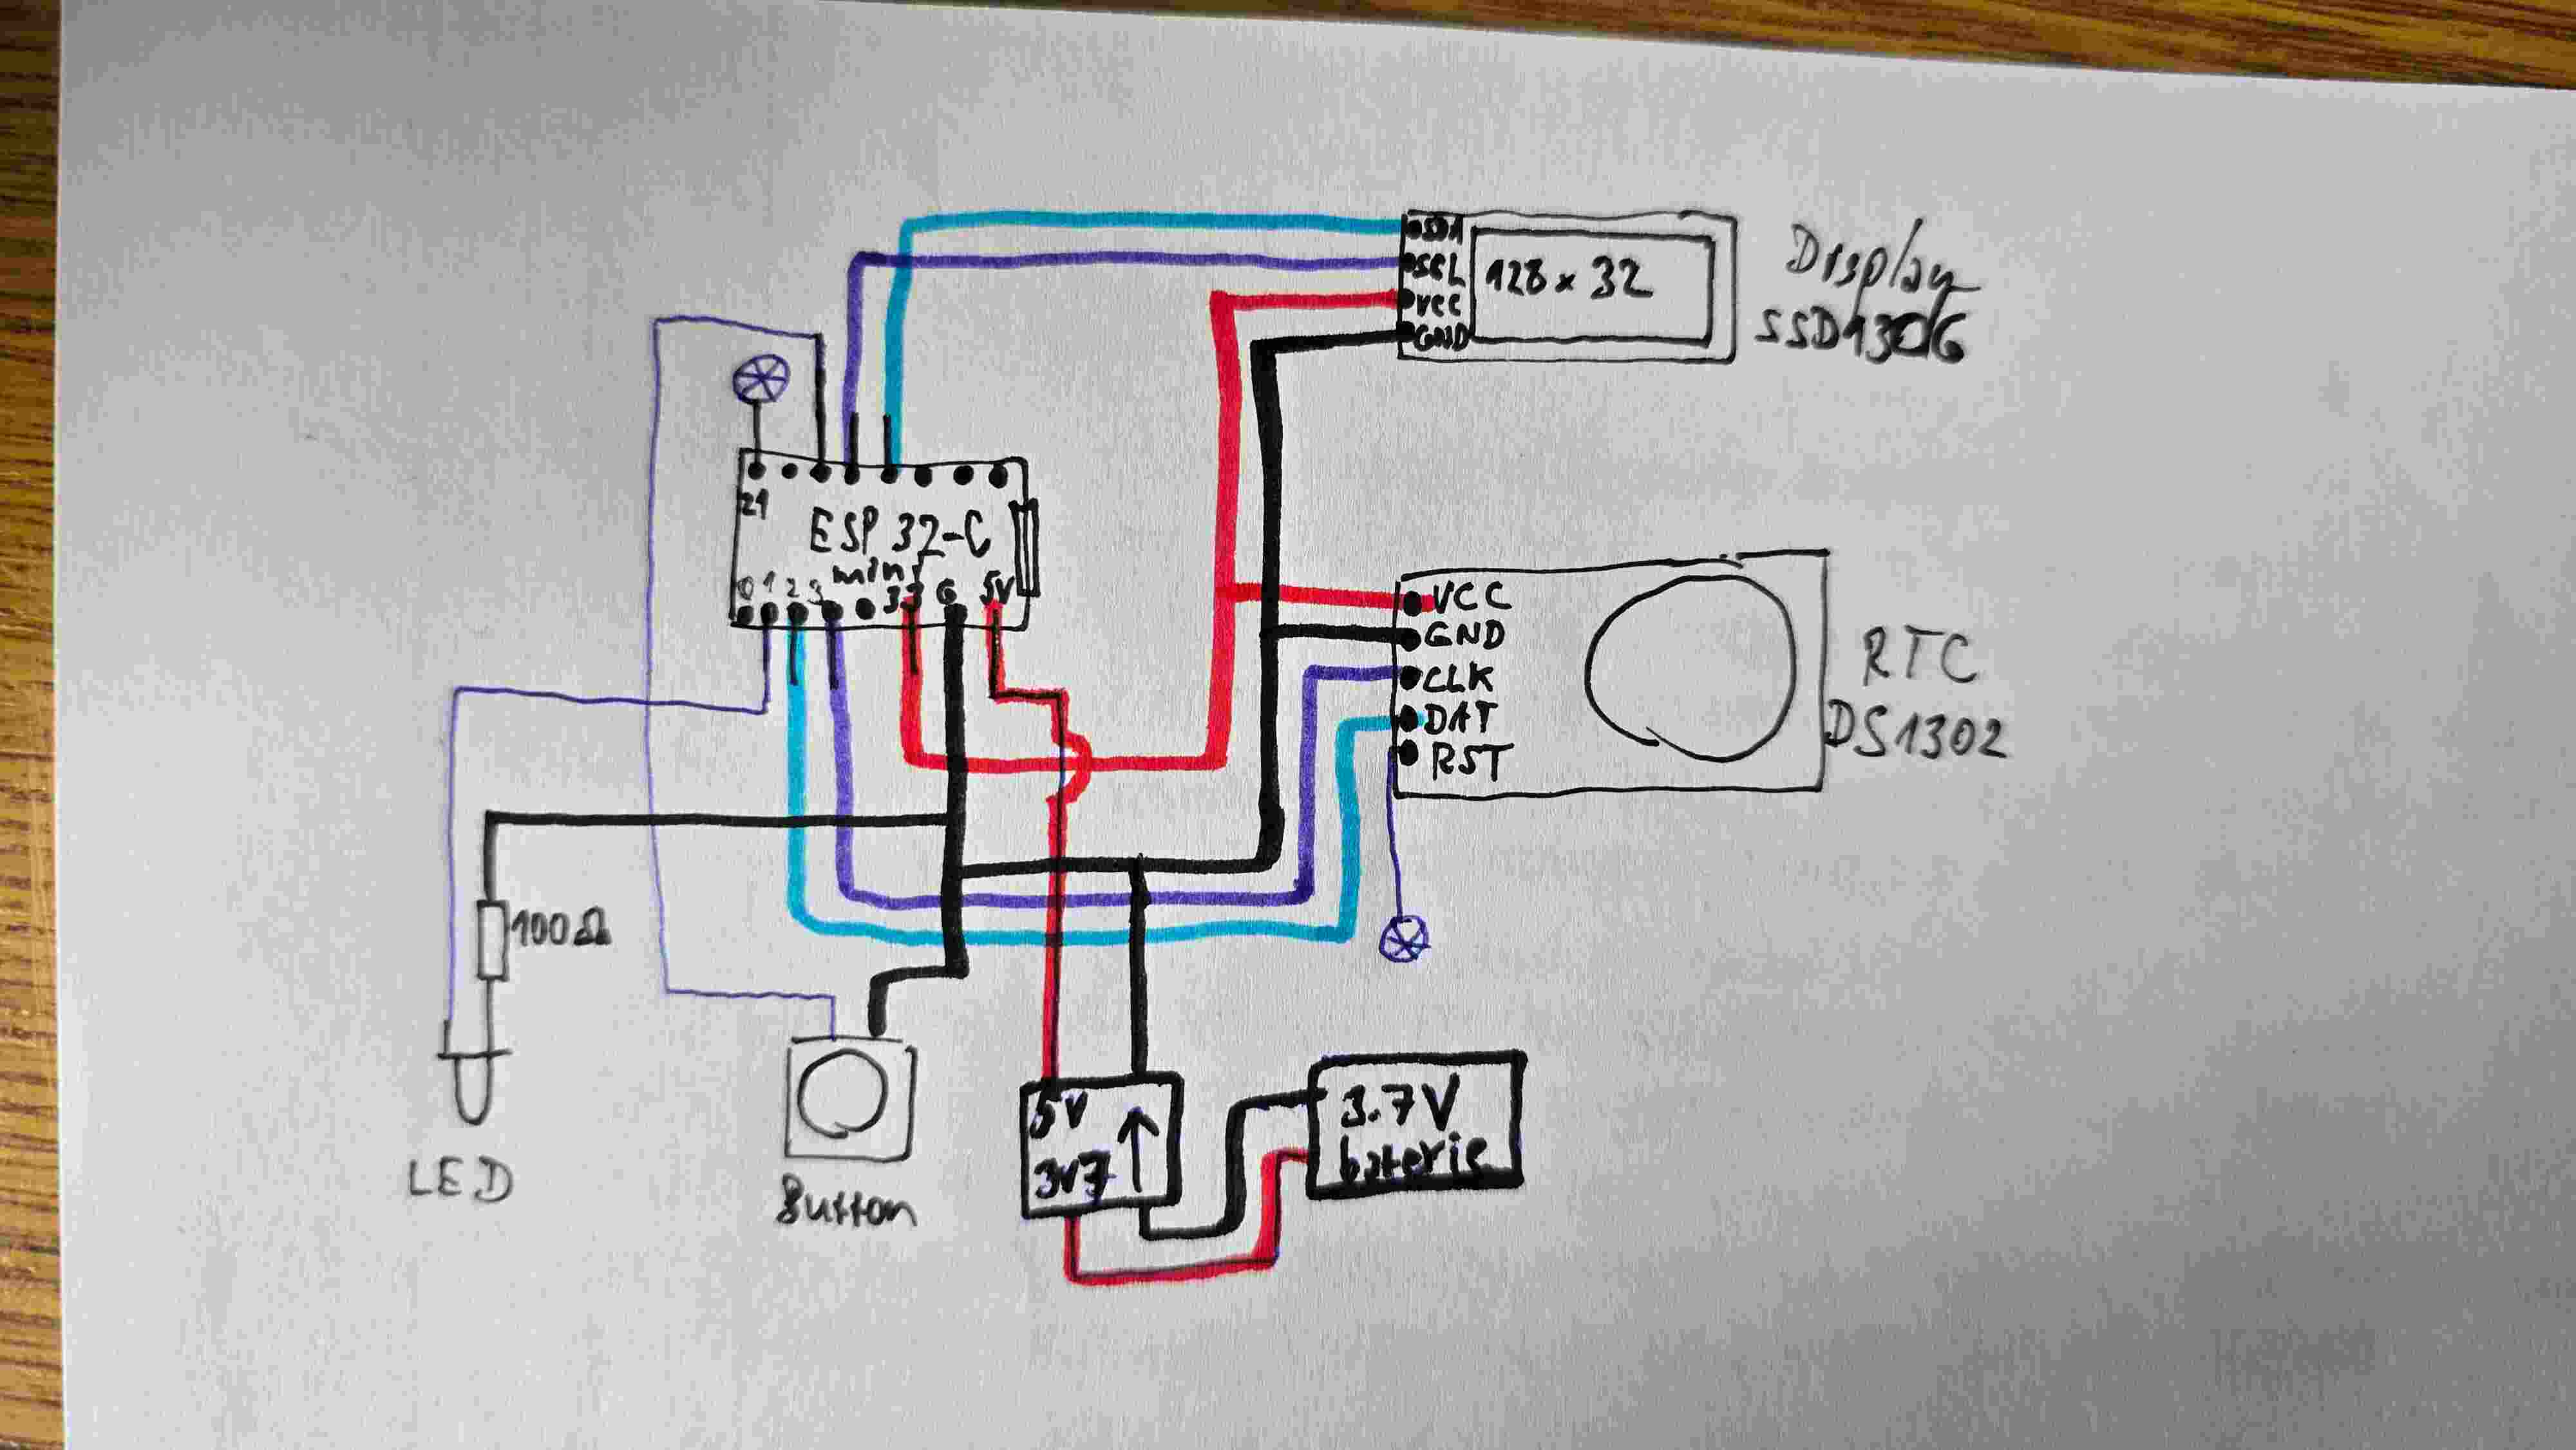 SDA
SCL
VCC
GND
128 x 32
Display
SSD1306
21
ESP 32-C
mini
0 1 2 3 3.3 G 5V
VCC
GND
CLK
DAT
RST
RTC
DS1302
100Ω
LED
Button
5V
3V7
3.7V
baterie